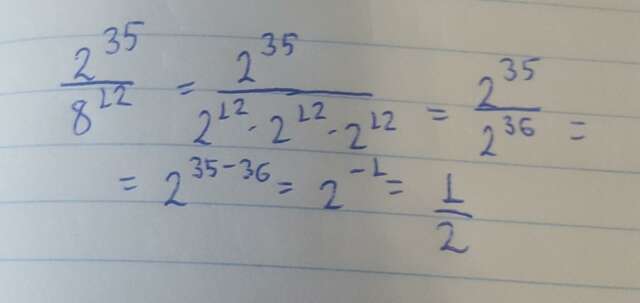 2^35 / 8^12 = 2^35 / (2^12 · 2^12 · 2^12) = 2^35 / 2^36 =
= 2^(35-36) = 2^(-1) = 1/2